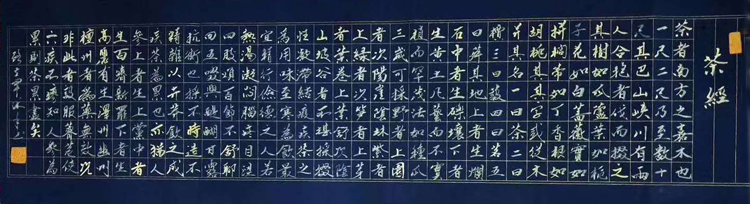 茶經
茶者南方之嘉木也
一尺二尺乃至數十
尺其巴山峽川有兩
人合抱者伐而掇之
其樹如瓜蘆葉如梔
子花如白薔薇實如
栟櫚莖如丁香根如
胡桃其字或從木
其名一曰茶二曰
檟三曰蔎曰茗五曰
荈其地上者生爛
石中者生礫壤下者
生黃土凡藝而不實
植而罕茂法如種瓜
三歲可採野者上園
者次陽崖陰林紫者
上綠者次筍者上芽
者次葉卷上葉舒次陰
山坡谷者不堪採掇
性凝滯結瘕疾茶之
為用味至寒為飲最
宜精行儉德之人若
熱渴凝悶腦疼目澀
四肢煩百節不舒聊
四五啜與醍醐甘露
抗衡也採不時造不
精雜以卉莽飲之成
疾茶為累也亦猶人
參上者生上黨中者
生百濟新羅下者生
高麗有生澤州幽州
檀州者為藥無效況
非此者設服薺苨使
六疾不瘳知人參為
累則茶累盡矣